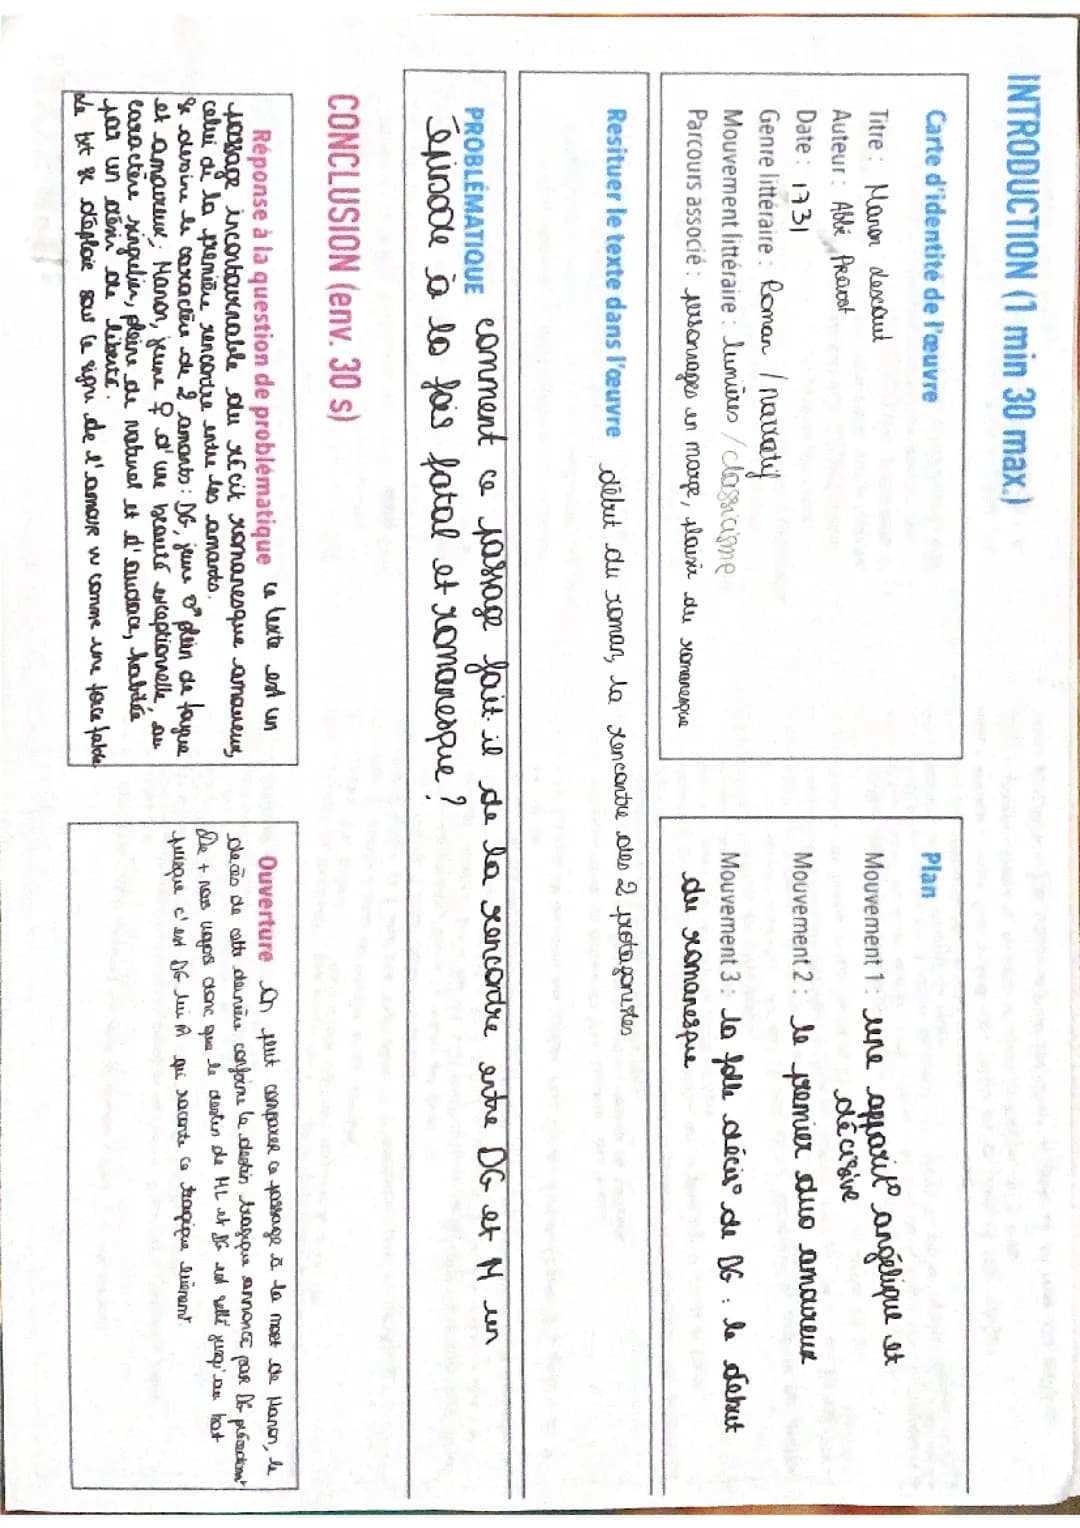 INTRODUCTION (1 min 30 max.)
Carte d'identité de l'œuvre
Titre : Manon descaut
Auteur : Abbé Prévost
Date : 1731
Genre littéraire : Roman / narratif
Mouvement littéraire : lumières / classicisme
Parcours associé : personnages en marge, plaisir du romanesque
Plan
Mouvement 1 : une apparit° angélique et
décisive
Mouvement 2 : le premier duo amoureux
Mouvement 3 : la folle décis° de DG : le debut
du romanesque
Resituer le texte dans l'œuvre début du roman, la rencontre des 2 protagonistes
PROBLÉMATIQUE comment ce passage fait-il de la rencontre entre DG et M un
épisode à la fois fatal et romanesque ?
CONCLUSION (env. 30 s)
Réponse à la question de problématique ce texte est un
passage incontournable du récit romanesque amoureux,
celui de la première rencontre entre les amants.
Se dessine le caractère de 2 amants : DG, jeune ♂ plein de fougue
et amoureux ; Manon, jeune ♀ d'une beauté exceptionnelle, au
caractère singulier, pleine de naturel et d'audace, habitée
par un désir de liberté.
Le txt se déploie sous le signe de l'amour vu comme une force fatale.
Ouverture On peut comparer ce passage à la mort de Manon, le
décès de cette dernière confirme le destin tragique annoncé par DG précédemt
De + nous voyons donc que le destin de ML et DG est sellé jusqu'au bout
puisque c'est DG lui m̂ qui raconte ce tragique